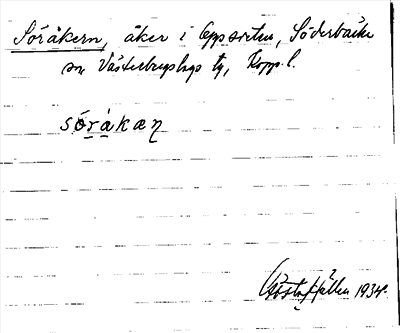 Söråkern, åker i Uppsveten, Söderbärke
sn Västerbergslags tg, Kopp. l.
sörakæn
Gösta Själlin 1934.